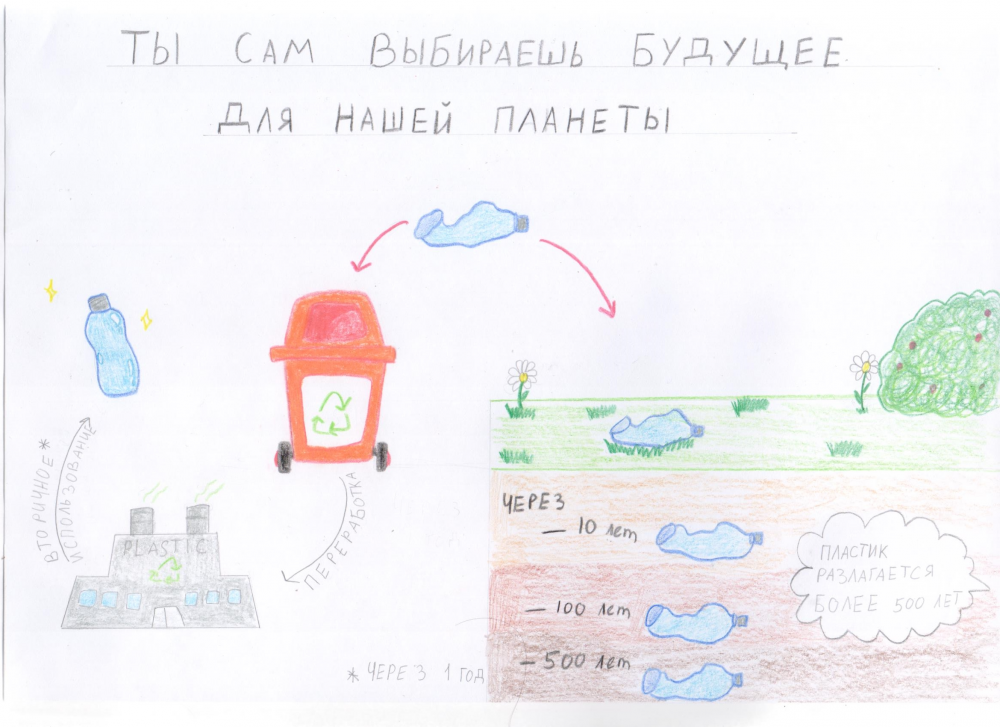 ТЫ САМ ВЫБИРАЕШЬ БУДУЩЕЕ
ДЛЯ НАШЕЙ ПЛАНЕТЫ
ВТОРИЧНОЕ*
ИСПОЛЬЗОВАНИЕ
PLASTIC
ПЕРЕРАБОТКА
* ЧЕРЕЗ 1 ГОД
ЧЕРЕЗ
— 10 лет
— 100 лет
— 500 лет
ПЛАСТИК
РАЗЛАГАЕТСЯ
БОЛЕЕ 500 ЛЕТ